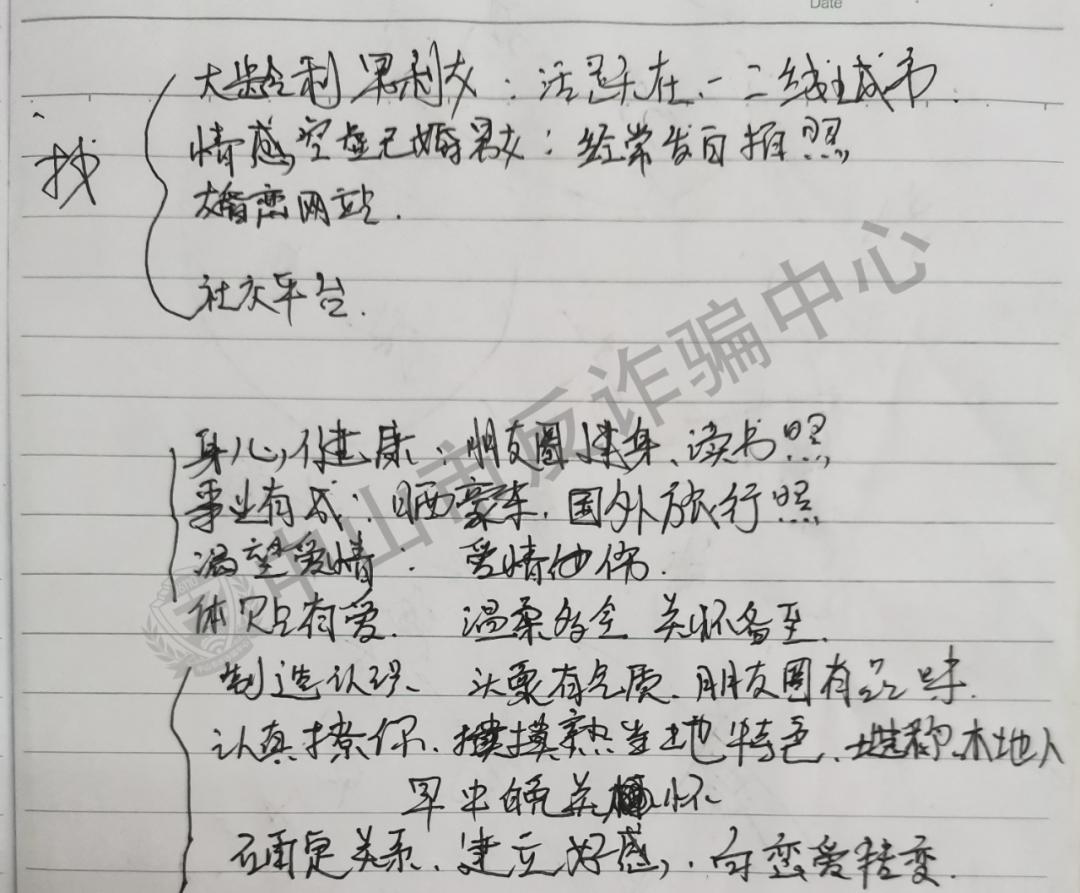 Date
找
大龄剩男剩女：活跃在一二线城市.
情感空虚已婚男女：经常发自拍照
婚恋网站.
社交平台.
身心健康：朋友圈健身、读书照
事业有成：晒豪车.国外旅行照
渴望爱情： 爱情
体贴有爱. 温柔多金 关怀备至.
制造认识、 头像有气质.朋友圈有品味.
认真撩你.摸熟当地特色、谎称本地人
早中晚关怀
确定关系.建立好感,.向恋爱转变.
中山市反诈骗中心